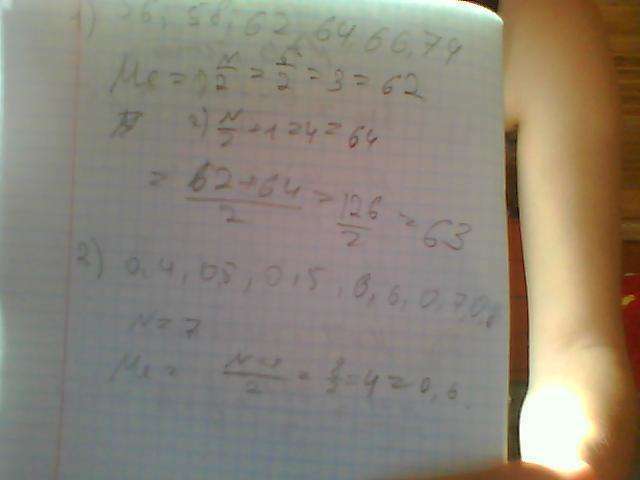 1) 26, 58, 62, 64 66, 74
Me = 1) N/2 = 6/2 = 3 = 62
2) N/2 + 1 = 4 = 64
= 62+64/2 = 126/2 = 63
2) 0,4, 05, 0,5, 0,6, 0,7 0,8
N = 7
Me = N+1/2 = 8/2 = 4 = 0,6